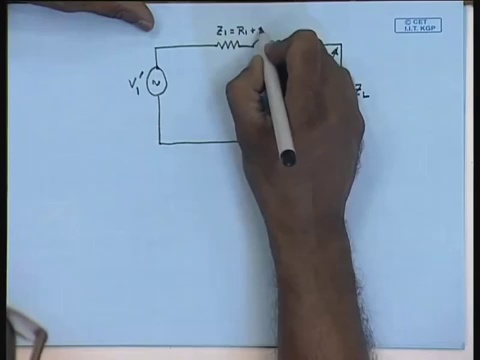 © CET
I.I.T. KGP
Z₁ = R₁ +
V₁'